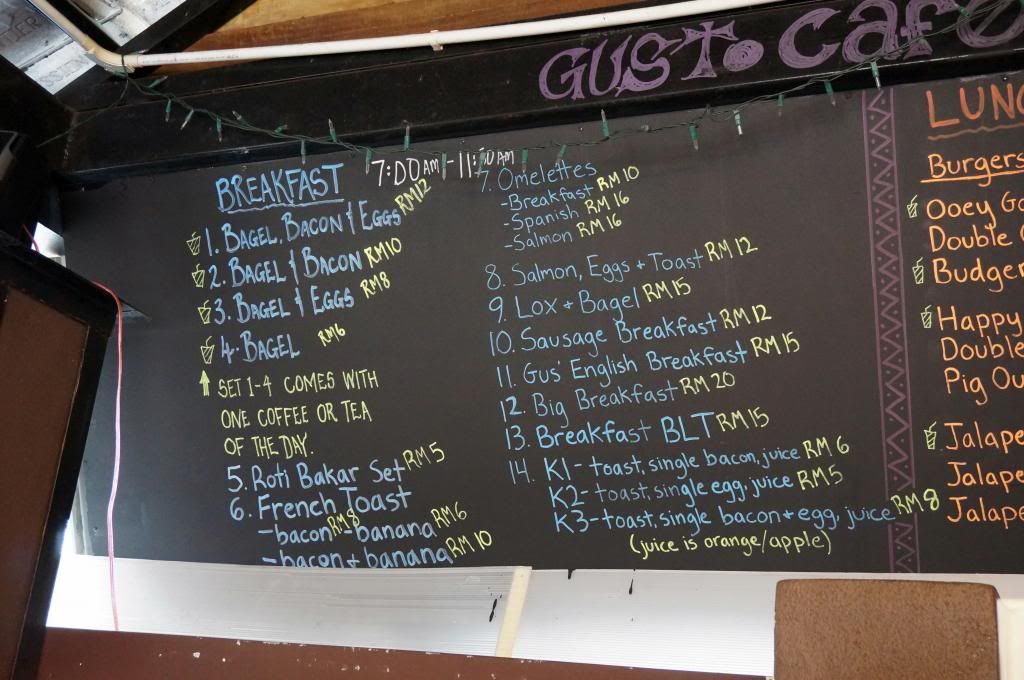 GUSto Café
BREAKFAST 7:00AM-11:
1. BAGEL, BACON & EGGS RM12
2. BAGEL & BACON RM10
3. BAGEL & EGGS RM8
4. BAGEL RM6
SET 1-4 COMES WITH
ONE COFFEE OR TEA
OF THE DAY.
5. Roti Bakar Set RM5
6. French Toast
-bacon RM8 -banana RM6
-bacon + banana RM10
7. Omelettes
-Breakfast RM10
-Spanish RM16
-Salmon RM16
8. Salmon, Eggs + Toast RM12
9. Lox + Bagel RM15
10. Sausage Breakfast RM12
11. Gus' English Breakfast RM15
12. Big Breakfast RM20
13. Breakfast BLT RM15
14. K1- toast, single bacon, juice RM6
K2- toast, single egg, juice RM5
K3- toast, single bacon + egg, juice RM8
(juice is orange/apple)
LUNC
Burgers
Ooey Go
Double
Budge
Happy
Double
Pig Ou
Jalape
Jalape
Jalape